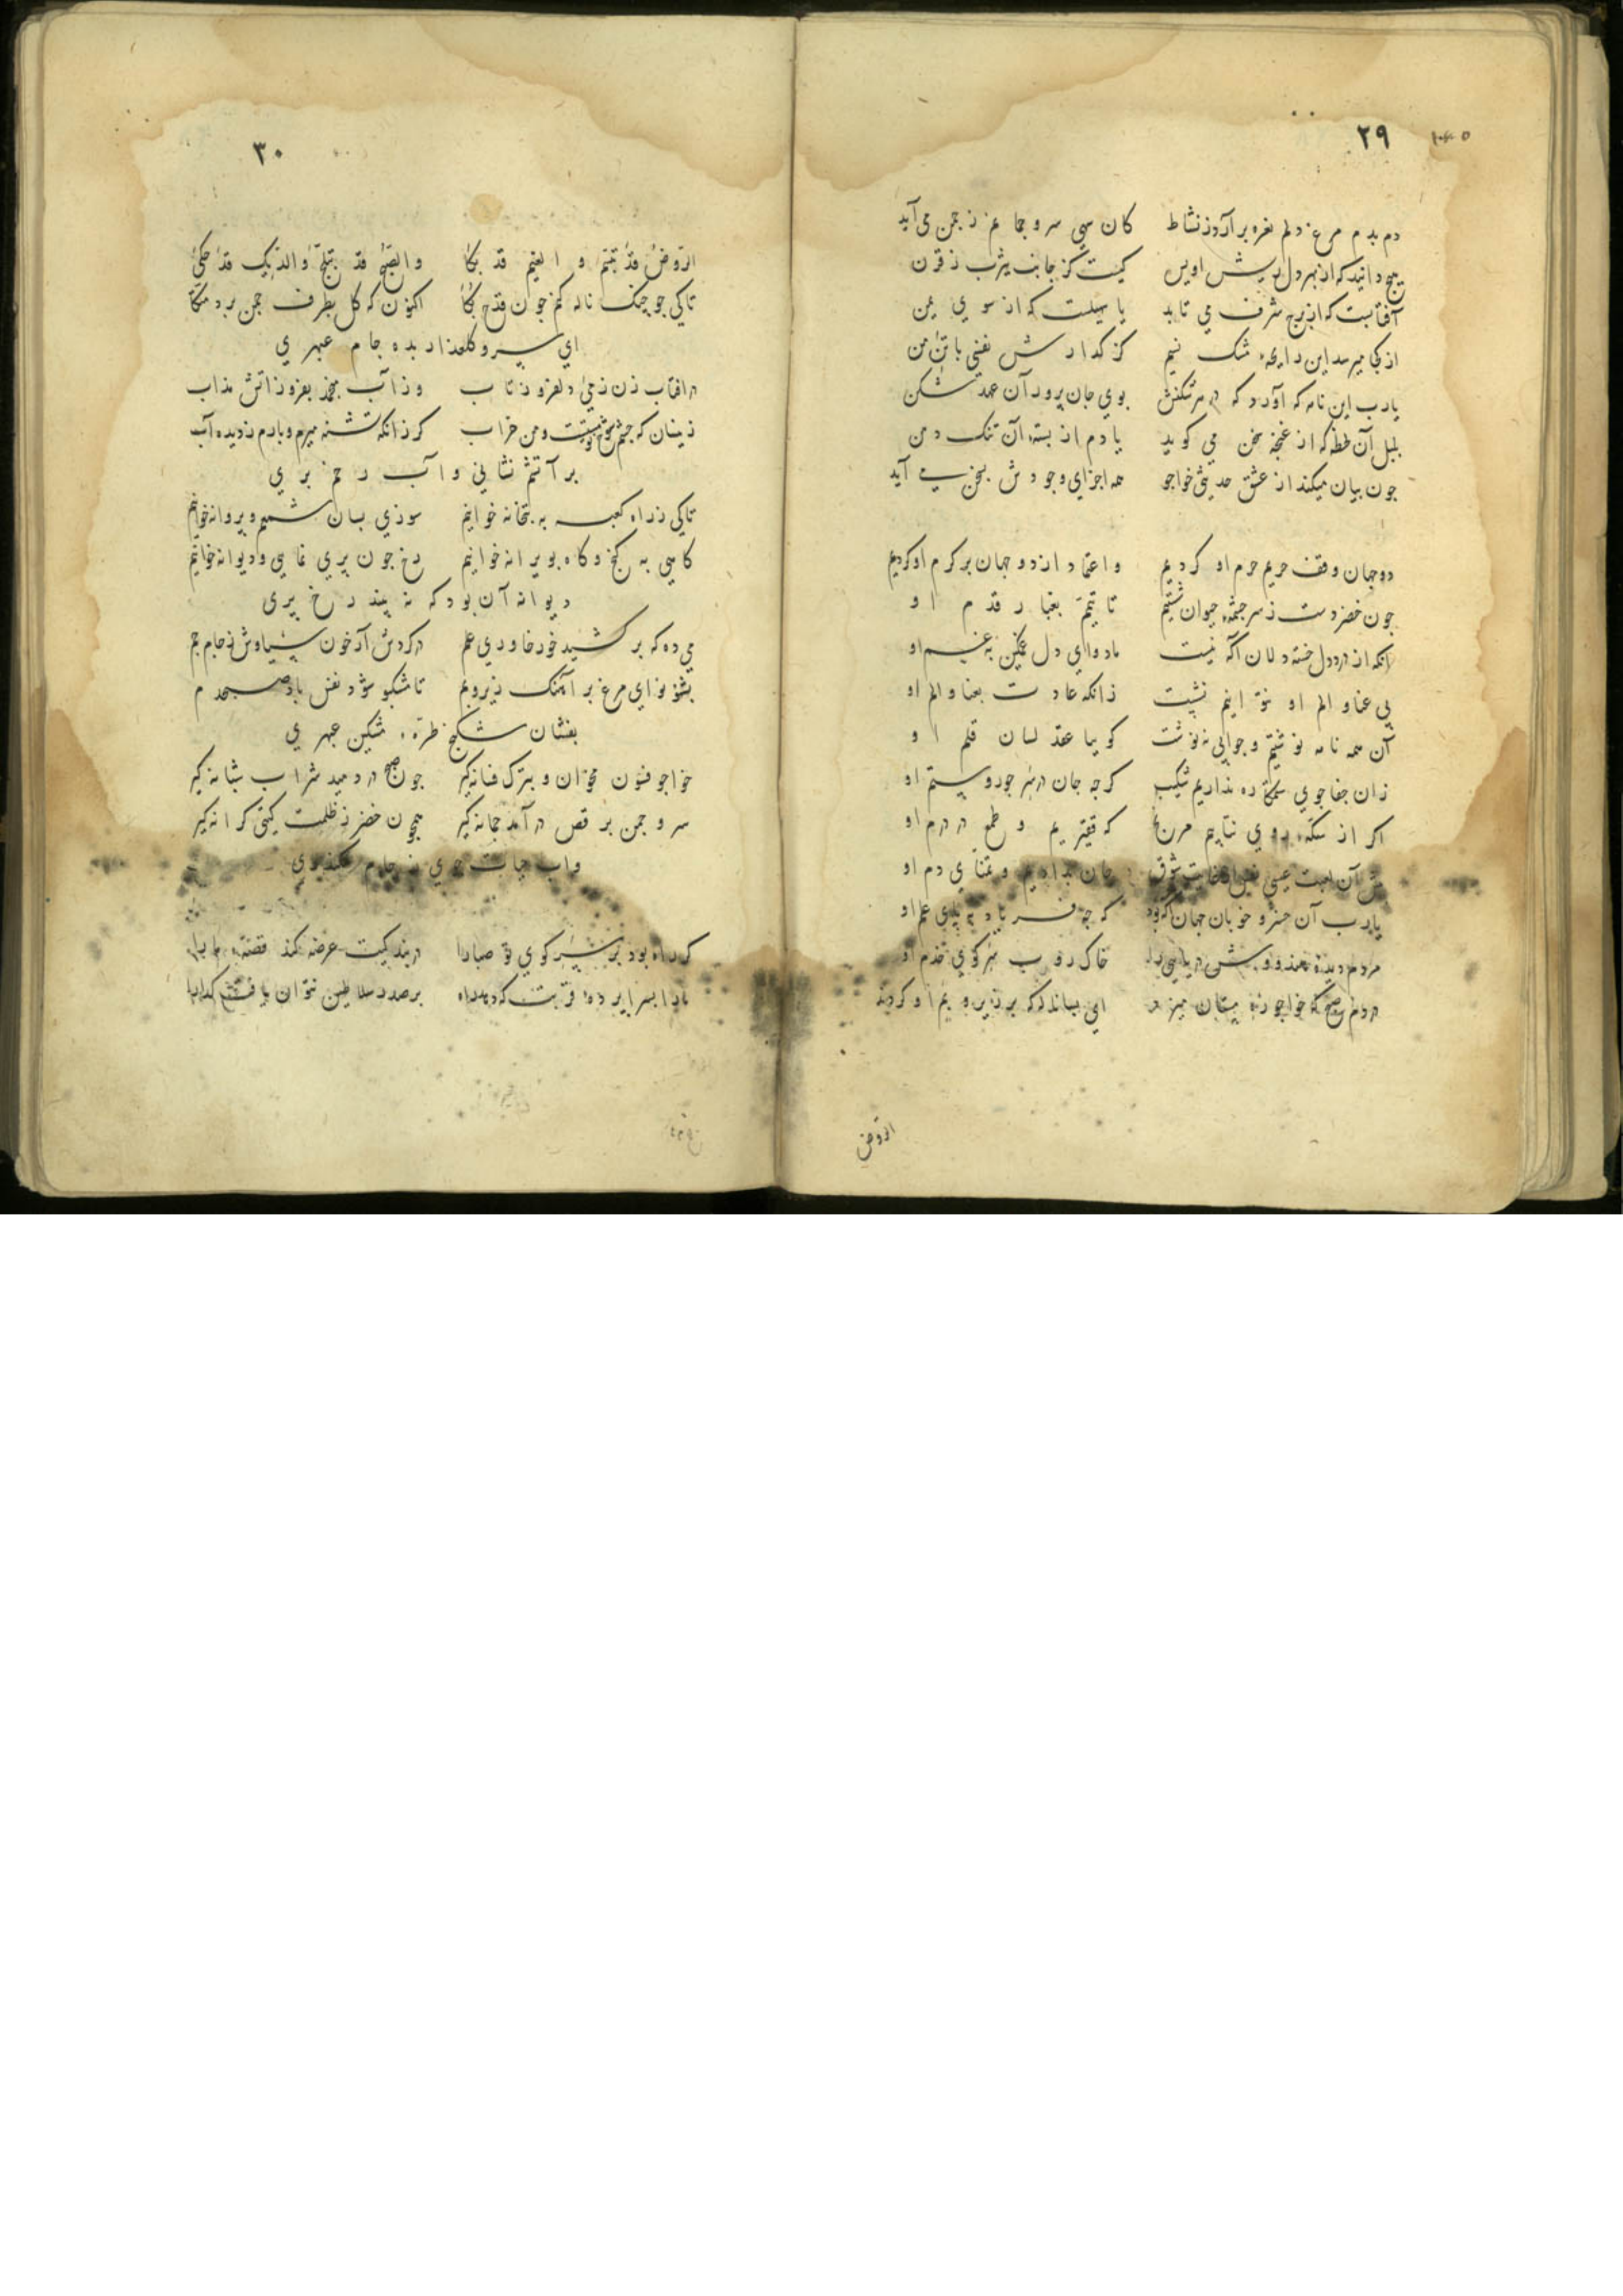 ۲۹
دم بدم مرغ دلم نعره برآرد ز نشاط کان سهی سرو چمانم ز چمن می آید
هیچ دانید که از بهر دل ریش اویس کیست کز جانب یثرب ز قرن
آفتابست که از برج شرف می تابد یا سهیلست که از سوی یمن
از کجا میرسد این رایحه مشک نسیم کز گذارش نفسی با تن من
یارب این نامه که آورد که در هر شکنش بوی جان پرور آن عهد شکن
بلبل آن لحظه که از غنچه سخن می گوید یادم از بسته آن تنک دهن
چون بیان میکند از عشق حدیثی خواجو همه اجزای وجودش بسخن می آید
دو جهان وقف حریم حرم او کردیم و اعتماد از دو جهان بر کرم او کردیم
چون خضر دست ز سرچشمه حیوان شستیم تا تیمم بغبار قدم او
آنکه از درد دل خسته دلان آگه نیست ما دوای دل غمگین به غم او
بی عنا و الم او نتوانیم نشست زانکه عادت بعنا و الم او
آن همه نامه نوشتیم و جوابی ننوشت گوییا عقد لسان قلم او
زان جفا جوی ستمکاره نداریم شکیب گرچه جان در سر جور و ستم او
اگر از سکه روی نتابیم مرنج که فقیریم و طمع در درم او
پیش آن لعبت عیسی نفس از غایت شوق جان بدادیم و تمنای دم او
یارب آن خسرو خوبان جهان آگه بود که چه فریاد به پای علم او
مردم دیده هندو وش دریایی را خاک روب سر کوی خدم او
دردم صبح که خواجو ره مستان میزد ای بسا ناله که بر زیر و بم او کردیم
الروض
۳۰
الروض قد تبسم و الغیم قد بکا والصبح قد تبلج والدیک قد حکی
تا کی چو چنگ ناله کنم چون قدح بکا اکنون که گل بطرف چمن برد متکا
ای سرو گلعذار بده جام عبهری
در افتاب زن ز می دلفروز تاب وز آب مجمد بفروز آتش مذاب
زینسان که چشم شوخ تو مستست و من خراب گر زانکه تشنه میرم و بارم ز دیده آب
بر آتشم نشانی و آب رخم بری
تا کی ز راه کعبه به بتخانه خوانیم سوزی بسان شمع و پروانه خوانیم
گاهی به گنج و گاه بویرانه خوانیم رخ چون پری نمایی و دیوانه خوانیم
دیوانه آن بود که نه بیند رخ پری
می ده که برکشید خور خاوری علم در گردش آر خون سیاوش ز جام جم
بشنو نوای مرغ بر آهنگ زیر و بم تا مشکبو شود نفس باد صبحدم
بفشان شکنج طره مشکین عبهری
خواجو فسون مخوان و بترک فسانه گیر چون صبح در دمید شراب شبانه گیر
سرو چمن برقص در آمد چمانه گیر همچون خضر ز ظلمت گیتی کرانه گیر
واب حیات جوی ز جام سکندری
گر راه بود بر سر کوی تو صبا را در بندگیت عرضه کند قصه ما را
ما را بسراپرده قربت که دهد راه بر صدر سلاطین نتوان یافت گدا را